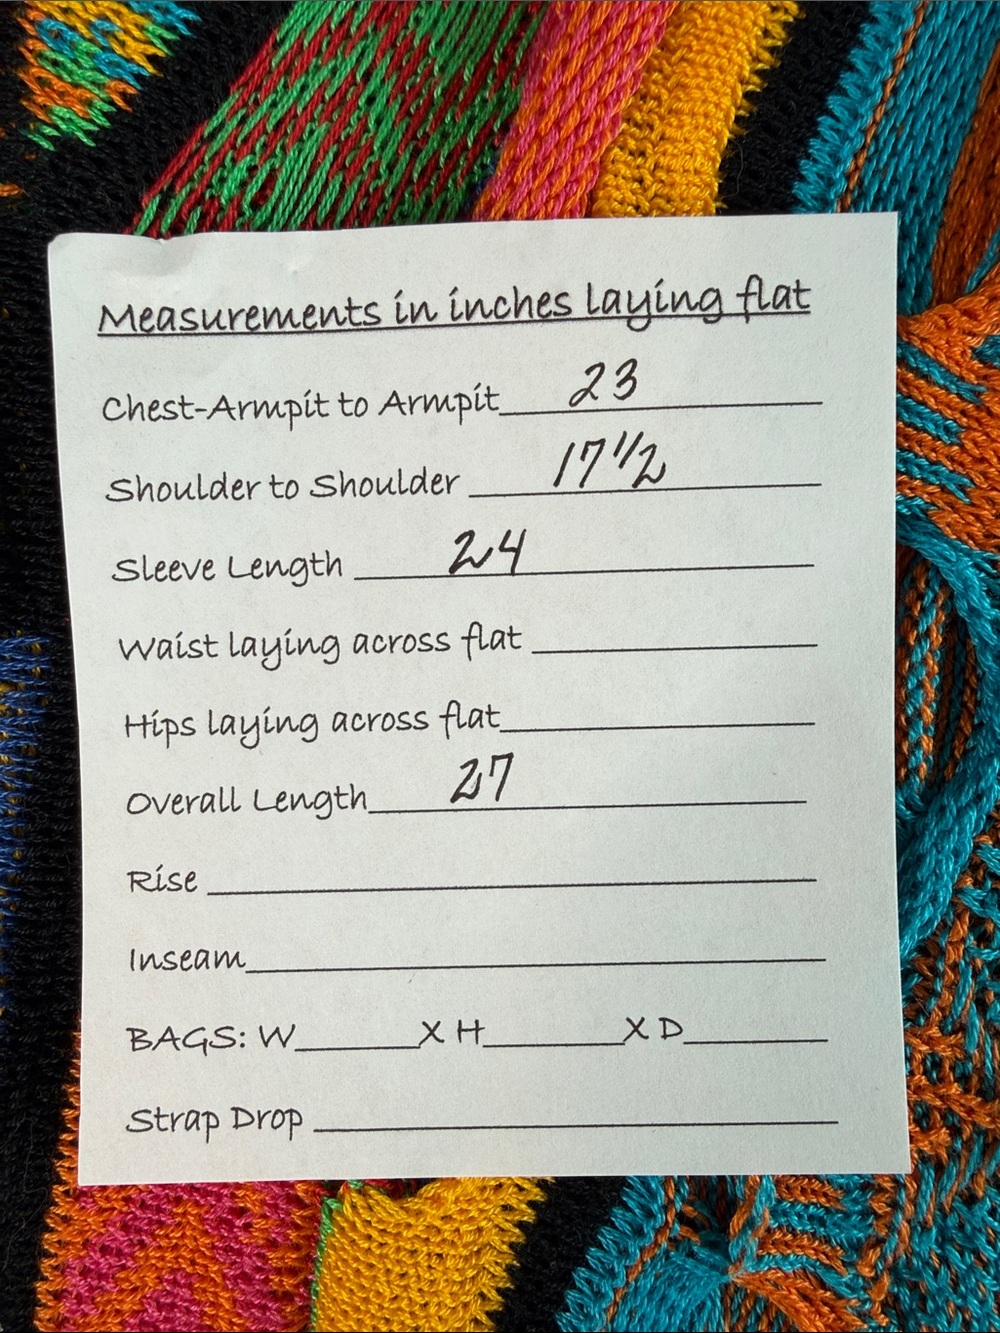 Measurements in inches laying flat
Chest-Armpit to Armpit 23
Shoulder to Shoulder 17 1/2
Sleeve Length 24
Waist laying across flat
Hips laying across flat
Overall Length 27
Rise
Inseam
BAGS: W______X H______X D______
Strap Drop